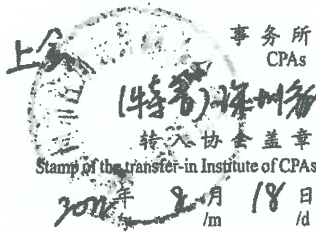 上会
事务所
CPAs
(特普)深圳分
转入协会盖章
Stamp of the transfer-in Institute of CPAs
年 8月 18日
/m /d